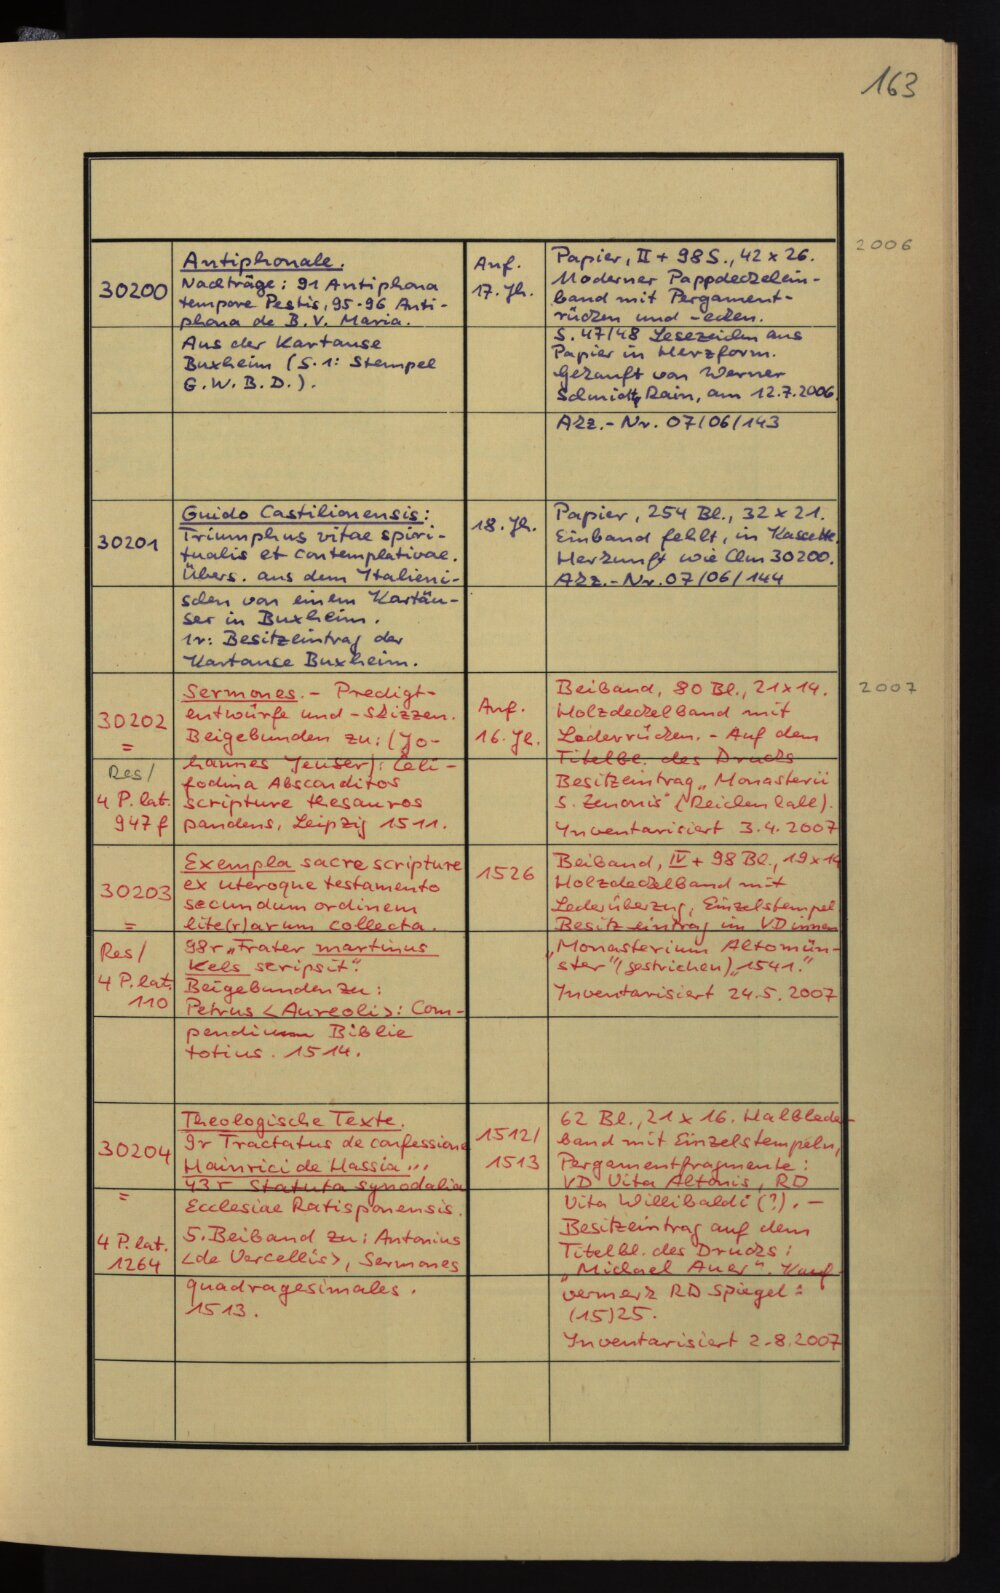 163
2006
30200
Antiphonale.
Nachträge: 91 Antiphona
tempore Pestis, 95-96 Anti-
phona de B.V. Maria.
Aus der Kartause
Buxheim (S. 1: Stempel
G.W.B.D.).
Anf.
17. Jh.
Papier, II + 98 S., 42 x 26.
Moderner Pappdeckelein-
band mit Pergament-
rücken und -ecken.
S. 47/48 Lesezeichen aus
Papier in Herzform.
Gekauft von Werner
Schmidt, Rain, am 12.7.2006.
Akz.-Nr. 07/06/143
30201
Guido Castilionensis:
Triumphus vitae spiri-
tualis et contemplativae.
Übers. aus dem Italieni-
schen von einem Kartäu-
ser in Buxheim.
1r: Besitzeintrag der
Kartause Buxheim.
18. Jh.
Papier, 254 Bl., 32 x 21.
Einband fehlt, in Kassette.
Herkunft wie Clm 30200.
Akz.-Nr. 07/06/144
2007
30202
=
Res/
4 P. lat.
947 f
Sermones. - Predigt-
entwürfe und -skizzen.
Beigebunden zu: (Jo-
hannes Jeuser): Celi-
fodina Absconditos
scripture thesauros
pandens, Leipzig 1511.
Anf.
16. Jh.
Beiband, 80 Bl., 21 x 14.
Holzdeckelband mit
Lederrücken. - Auf dem
Titelbl. des Drucks
Besitzeintrag „Monasterii
S. Zenonis" (Reichenhall).
Inventarisiert 3.4.2007
30203
=
Res/
4 P. lat.
110
Exempla sacre scripture
ex uteroque testamento
secundum ordinem
lite(r)arum collecta.
98r „Frater martinus
Kels scripsit".
Beigebunden zu:
Petrus <Aureoli>: Com-
pendium Biblie
totius. 1514.
1526
Beiband, IV + 98 Bl., 19 x 14
Holzdeckelband mit
Lederüberzug, Einzelstempel
Besitzeintrag im VD innen
„Monasterium Altomün-
ster" (gestrichen) „1541."
Inventarisiert 24.5.2007
30204
=
4 P. lat.
1264
Theologische Texte.
9r Tractatus de confessione
Hainrici de Hassia...
43r Statuta synodalia
Ecclesiae Ratisponensis.
5. Beiband zu: Antonius
<de Vercellis>, Sermones
quadragesimales.
1513.
1512/
1513
62 Bl., 21 x 16. Halbleder-
band mit Einzelstempeln,
Pergamentfragmente:
VD Vita Altonis, RD
Vita Willibaldi (?). -
Besitzeintrag auf dem
Titelbl. des Drucks:
„Michael Auer". Kauf-
vermerk RD Spiegel:
(15)25.
Inventarisiert 2.8.2007